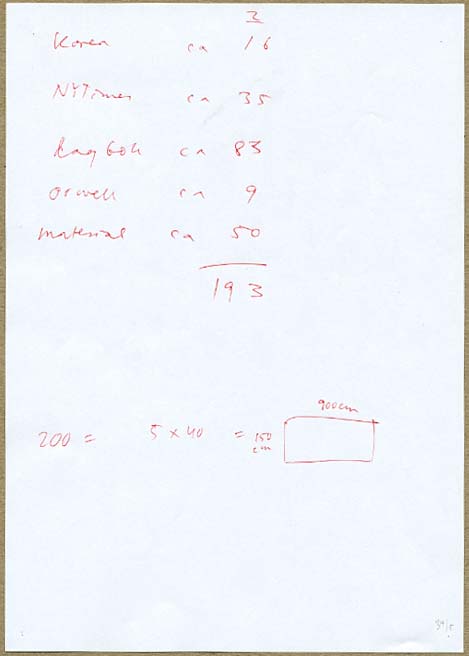 2
Korea ca 16
NYTimes ca 35
ca 83
orwell ca 9
material ca 50
193
900cm
200 = 5 x 40 = 150 cm